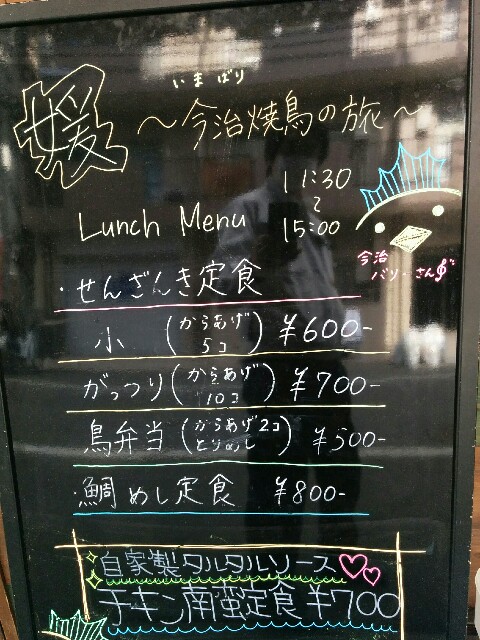 媛
いまばり
～今治焼鳥の旅～
Lunch Menu
11:30
～
15:00
今治
バリーさん
・せんざんき定食
小 (からあげ 5コ) ¥600-
がっつり (からあげ 10コ) ¥700-
鳥弁当 (からあげ2コ とりめし) ¥500-
・鯛めし定食 ¥800-
自家製タルタルソース
チキン南蛮定食 ¥700